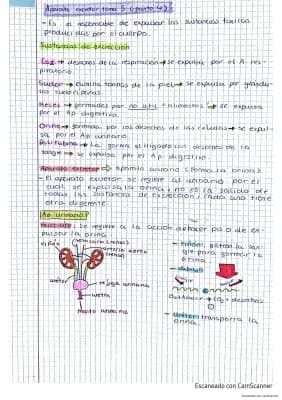 Aparato excretor tema 5 (parte 4)
- Es el responsable de expulsar las sustancias toxicas
producidas por el cuerpo.
Sustancias de excreción
Co2 → desecho de la respiración → se expulsa por el A. res-
piratorio.
Sudor → elimina toxinas de la piel → se expulsa por glándu-
las sudoríparas.
Heces → formadas por no util alimentos → se expulsa
por el Ap. digestivo.
Orina → formada por los desechos de las celulas → se expul-
sa por el Ap urinario.
Bilirrubina → La forma el hígado con desechos de la
sangre → se expulsa por el Ap. digestivo.
Aparato excretor Aparato urinario (forma la orina)
- El aparato excretor se refiere al urinario por el
cual se expulsa la orina, no es la salida de
todas las sustancias de excreción, cada una tiene
otra diferente.
Ap. urinario
se refiere a la acción de hacer pis o de ex-
pulsar la orina.
riñón
arteria aorta
(renal)
uréter
vejiga urinaria
uretra
- riñón: filtra la san-
gre para formar la
orina.
- uréter: transporta la
orina.
Escaneado con CamScanner